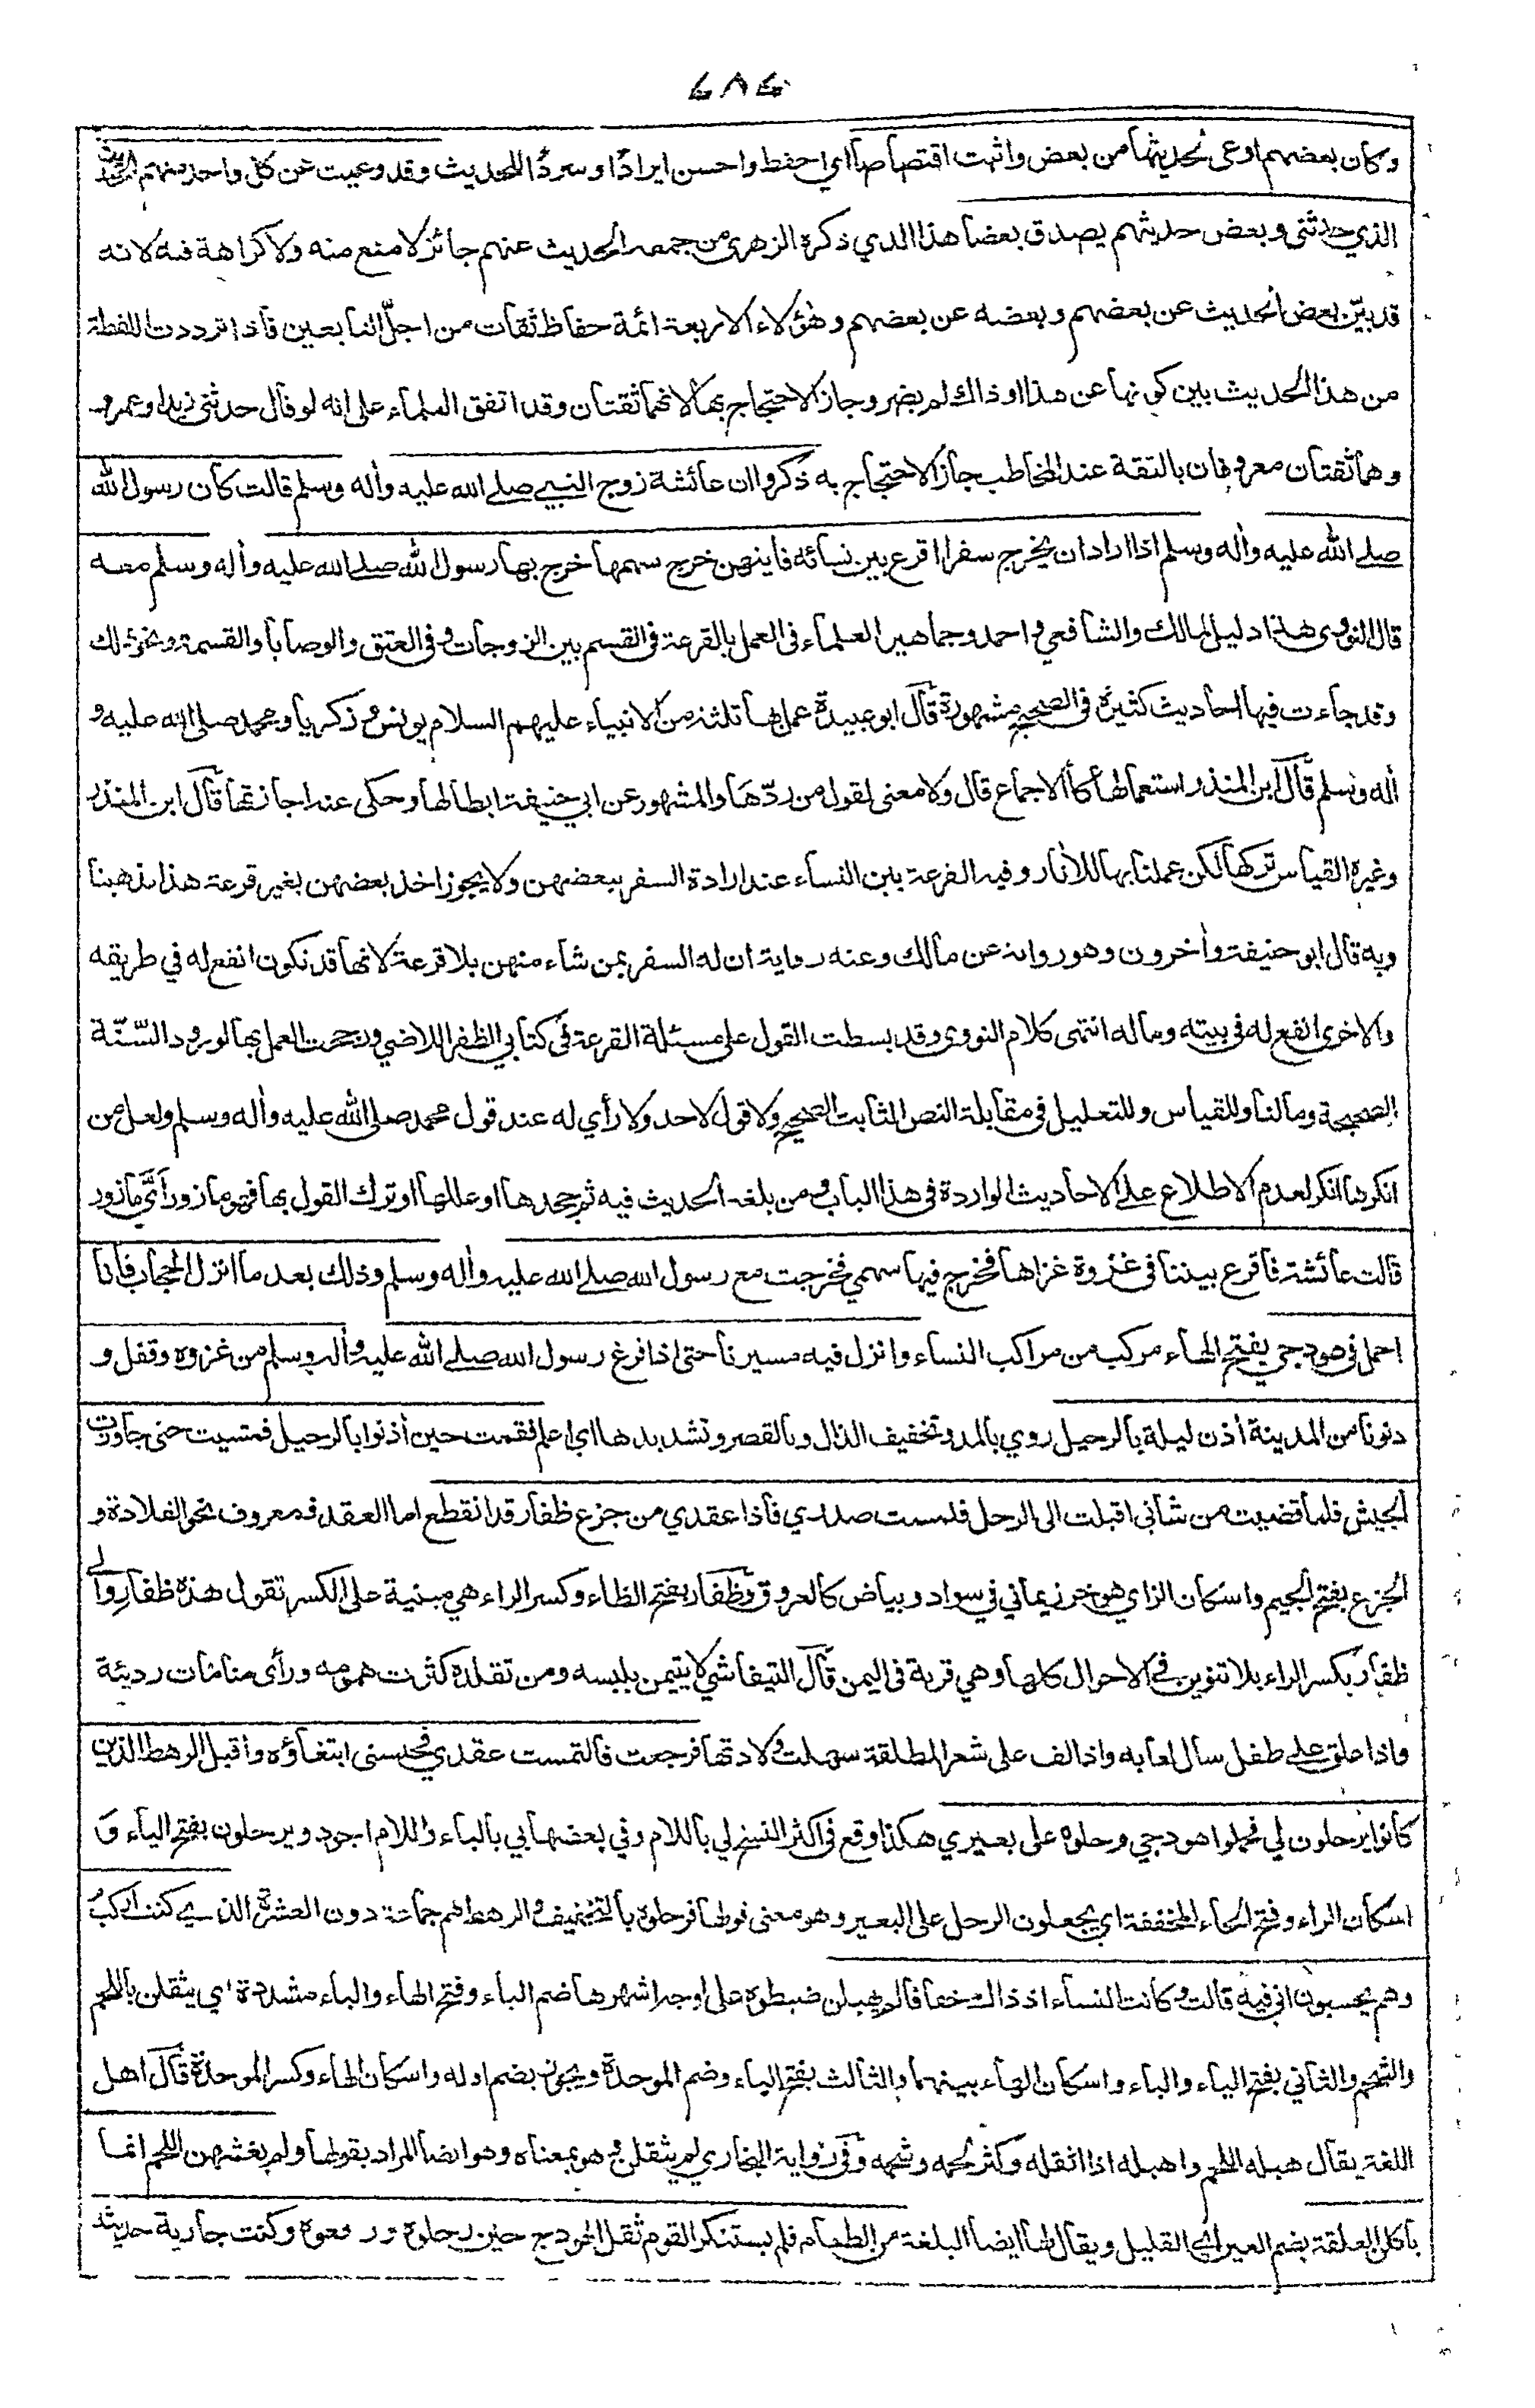 وكان بعضهم اوعى لحديثها من بعض واثبت اقتصاصا اي احفظ واحسن ايرادًا وسردًا للحديث وقد وعيت عن كل واحد منهم الحديث
الذي حدثني وبعض حديثهم يصدق بعضا هذا الذي ذكره الزهري من جمعه الحديث عنهم جائز لا منع منه ولا كراهة فيه لانه
قد بيّن بعض الحديث عن بعضهم وبعضه عن بعضهم وهؤلاء الاربعة ائمة حفاظ ثقات من اجلّ التابعين فاذا ترددت اللفظة
من هذا الحديث بين كونها عن هذا او ذاك لم يضر وجاز الاحتجاج بها لانهما ثقتان وقد اتفق العلماء على انه لو قال حدثني زيد او عمرو
وهما ثقتان معروفان بالثقة عند المخاطب جاز الاحتجاج به ذكروا ان عائشة زوج النبي صلى الله عليه وأله وسلم قالت كان رسول الله
صلى الله عليه وأله وسلم اذا اراد ان يخرج سفرا اقرع بين نسائه فايتهن خرج سهمها خرج بها رسول الله صلى الله عليه وأله وسلم معه
قال النووي هذا دليل لمالك والشافعي واحمد وجماهير العلماء في العمل بالقرعة في القسم بين الزوجات وفي العتق والوصايا والقسمة ونحو ذلك
وقد جاءت فيها احاديث كثيرة في الصحيح مشهورة قال ابو عبيدة عمل بها ثلثة من الانبياء عليهم السلام يونس وزكريا ومحمد صلى الله عليه و
أله وسلم قال ابن المنذر استعمالها كالاجماع قال ولا معنى لقول من ردّها والمشهور عن ابي حنيفة ابطالها وحكى عنه اجازتها قال ابن المنذر
وغيره القياس تركها لكن عملنا بها للأثار وفيه القرعة بين النساء عند ارادة السفر ببعضهن ولا يجوز اخذ بعضهن بغير قرعة هذا مذهبنا
وبه قال ابو حنيفة وأخرون وهو رواية عن مالك وعنه رواية ان له السفر بمن شاء منهن بلا قرعة لانها قد تكون انفع له في طريقه
والاخرى انفع له في بيته وماله انتهى كلام النووي وقد بسطت القول على مسئلة القرعة في كتابي الظفر اللاضي ورجحت العمل بها لورود السّنّة
الصحيحة وما لنا وللقياس وللتعليل في مقابلة النص الثابت الصحيح ولا قول لاحد ولا رأي له عند قول محمد صلى الله عليه وأله وسلم ولعل من
انكرها انكر لعدم الاطلاع على الاحاديث الواردة في هذا الباب ومن بلغه الحديث فيه ثم جحدها او عللها او ترك القول بها فهو مازور أيّ مازور
قالت عائشة فاقرع بيننا في غزوة غزاها فخرج فيها سهمي فخرجت مع رسول الله صلى الله عليه وأله وسلم وذلك بعد ما انزل الحجاب فانا
احمل في هودجي بفتح الهاء مركب من مراكب النساء وانزل فيه مسيرنا حتى اذا فرغ رسول الله صلى الله عليه وأله وسلم من غزوه وقفل و
دنونا من المدينة أذن ليلة بالرحيل روي بالمد وتخفيف الذال وبالقصر وتشديدها اي اعلم فقمت حين أذنوا بالرحيل فمشيت حتى جاوزت
الجيش فلما قضيت من شأني اقبلت الى الرحل فلمست صدري فاذا عقدي من جزع ظفار قد انقطع اما العقد فمعروف نحو القلادة و
الجزع بفتح الجيم واسكان الزاي هو خرز يماني في سواد وبياض كالعروق وظفار بفتح الظاء وكسر الراء هي مبنية على الكسر تقول هذه ظفارِ والى
ظفار بكسر الراء بلا تنوين في الاحوال كلها وهي قرية في اليمن قال التيفاشي لا يتيمن بلبسه ومن تقلده كثرت همومه ورأى منامات رديئة
واذا علق على طفل سال لعابه واذا لف على شعر المطلقة سهلت ولادتها فرجعت فالتمست عقدي فحبسني ابتغاؤه واقبل الرهط الذين
كانوا يرحلون لي فحملوا هودجي وحلوه على بعيري هكذا وقع في اكثر النسخ لي باللام وفي بعضها بي بالباء واللام اجود ويرحلون بفتح الياء وَ
اسكان الراء وفتح الحاء المخففة اي يجعلون الرحل على البعير وهو معنى قولها فرحلوه بالتخفيف والرهط هم جماعة دون العشرة الذي كنت اركبُ
وهم يحسبون اني فيه قالت وكانت النساء اذ ذاك خفافا لم يهبلن ضبطوه على اوجه اشهرها ضم الياء وفتح الهاء والباء مشددة اي يثقلن باللحم
والشحم والثاني بفتح الياء والباء واسكان الهاء بينهما والثالث بفتح الياء وضم الموحدة ويجوز بضم اوله واسكان الهاء وكسر الموحدة قال اهل
اللغة يقال هبله اللحم واهبله اذا اثقله وكثر لحمه وشحمه وفي رواية البخاري لم يثقلن وهو بمعناه وهو ايضا المراد بقولها ولم يغشهن اللحم انما
يأكلن العلقة بضم العين اي القليل ويقال لها ايضا البلغة من الطعام فلم يستنكر القوم ثقل الهودج حين رحلوه ورفعوه وكنت جارية حديثة